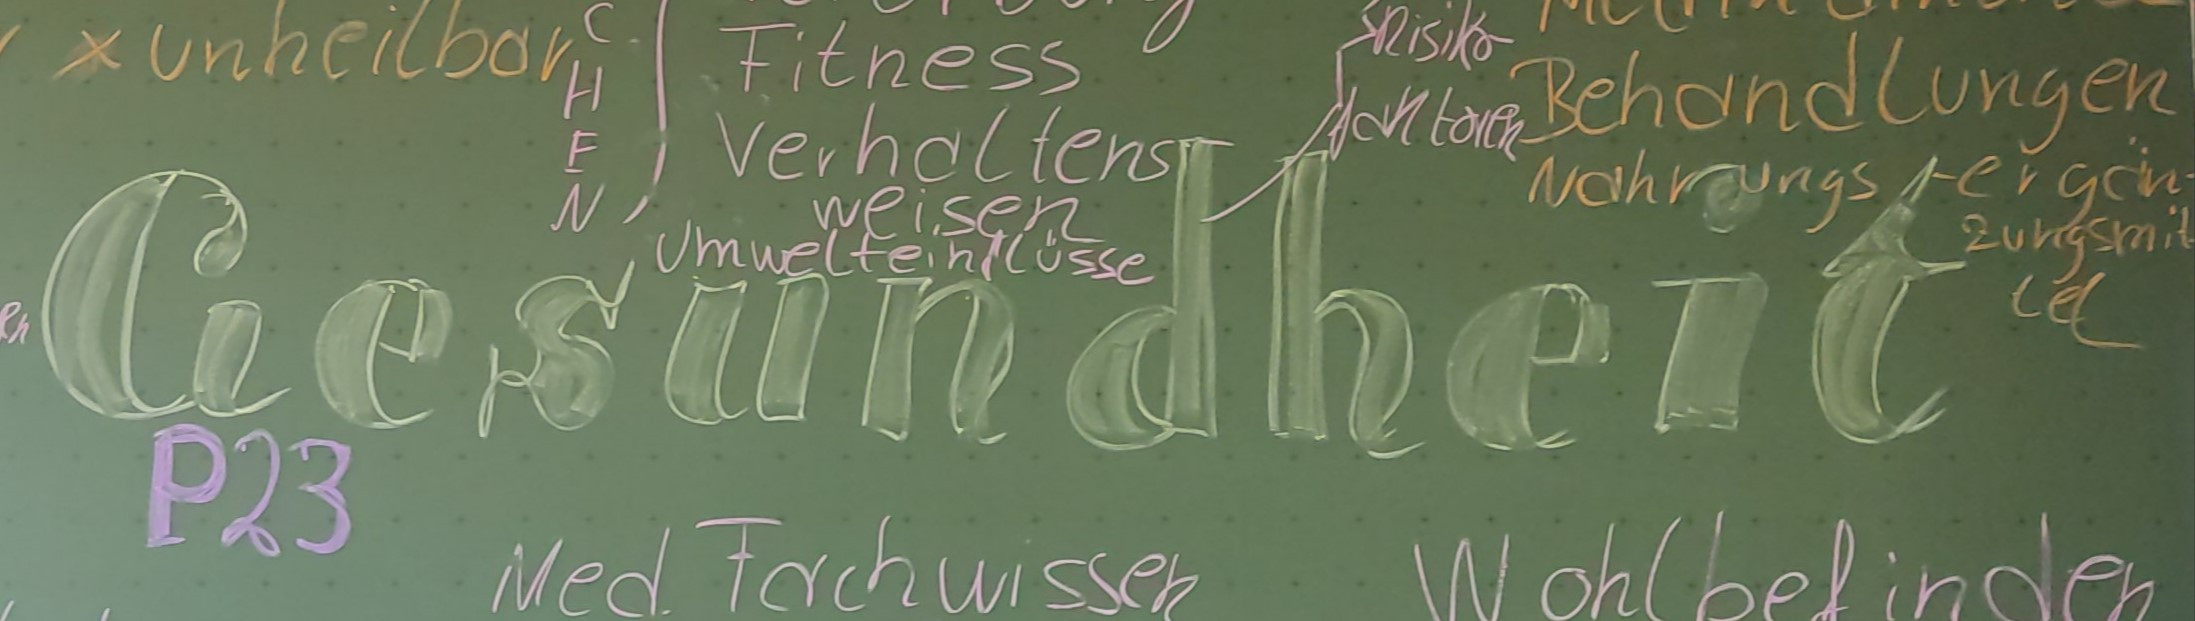 x unheilbar
C
H
E
N
Fitness
Verhaltens
weisen
Umwelteinflüsse
Risiko
faktoren
Behandlungen
Nahrungs-ergän-
zungsmit
tel
Gesundheit
P23
Med. Fachwissen
Wohlbefinden